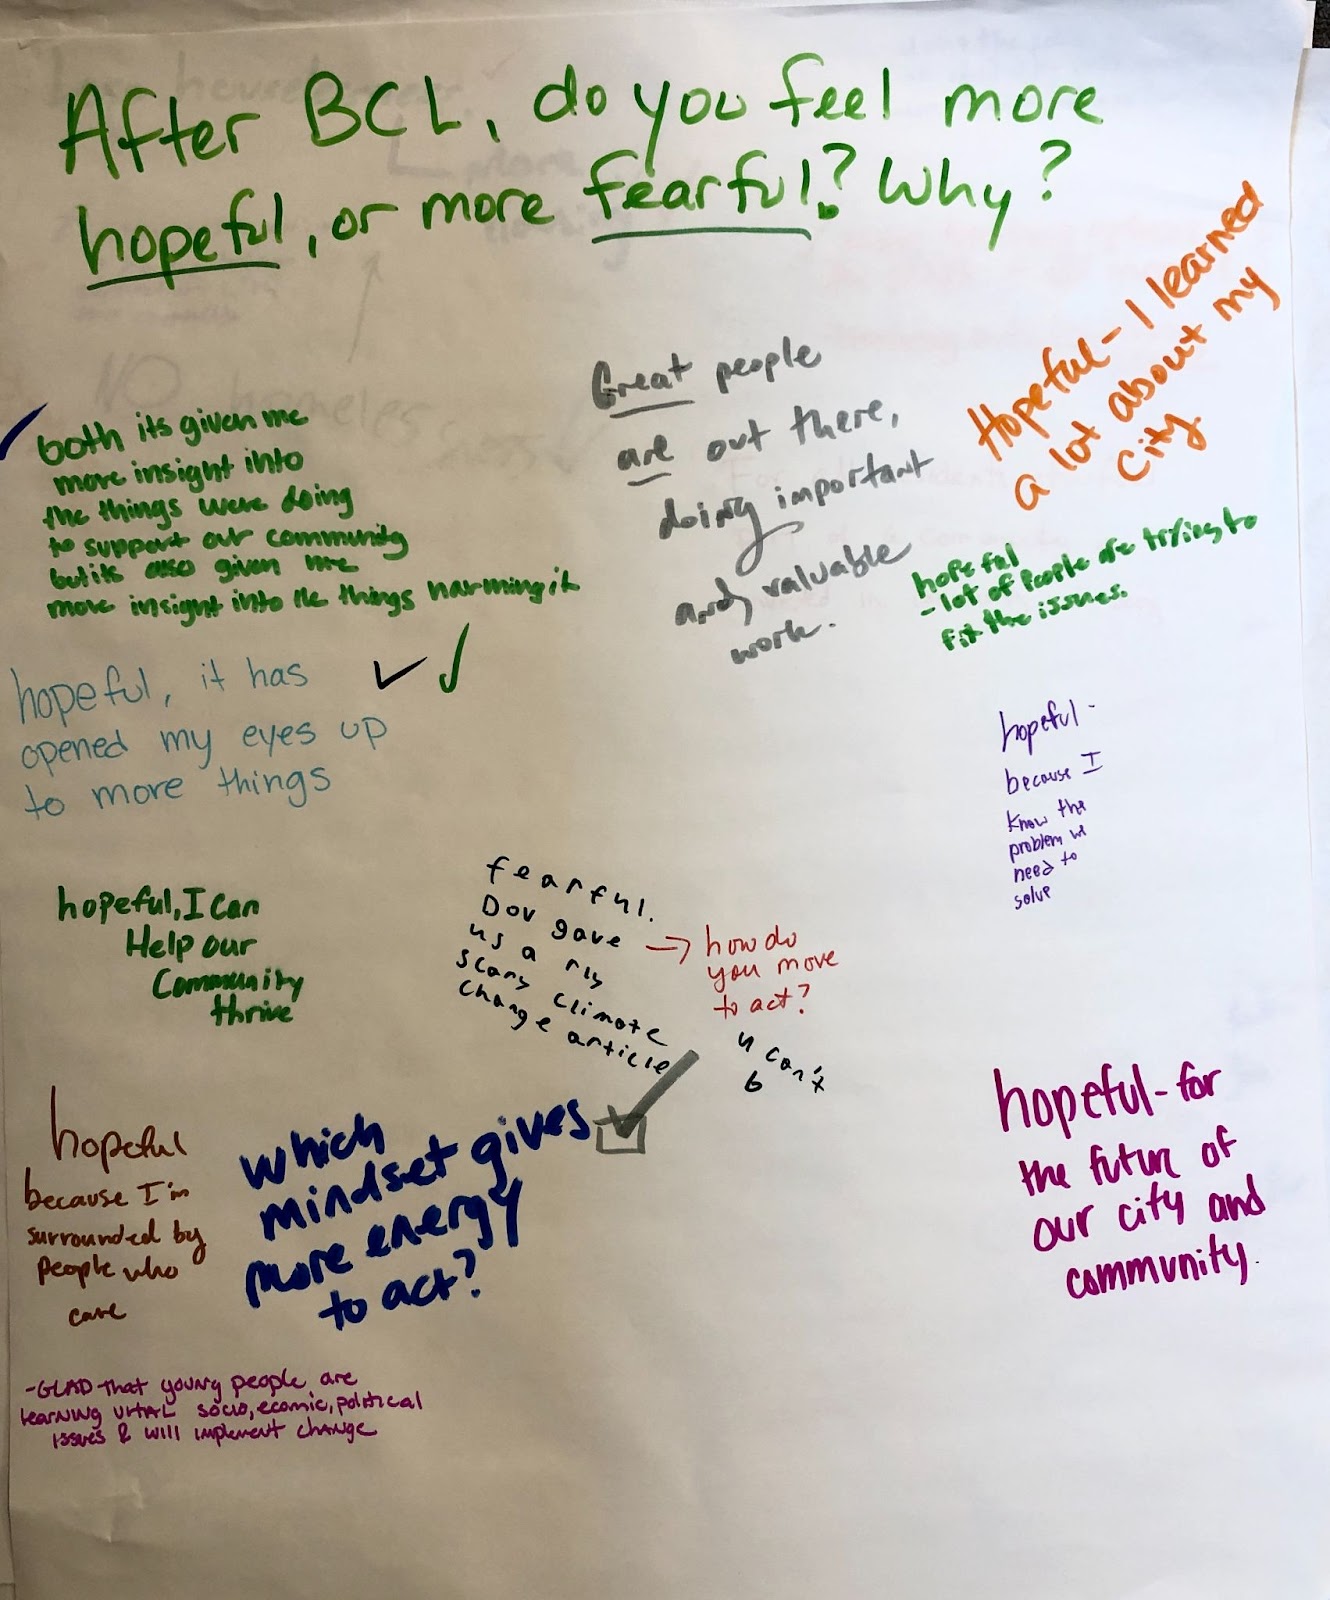 After BCL, do you feel more
hopeful, or more fearful? Why?
Hopeful - I learned
a lot about my
city.
Great people
are out there,
doing important
and valuable
work.
both its given me
more insight into
the things were doing
to support our community
but its also given me
more insight into the things harming it
hopeful
- lot of people are trying to
fix the issues.
hopeful, it has
opened my eyes up
to more things
hopeful -
because I
know the
problem we
need to
solve
hopeful, I can
Help our
Community
thrive
fearful.
Dov gave
us a rly
scary climate
change article
→ how do
you move
to act?
u can't
hopeful
because I'm
surrounded by
people who
care
which
mindset gives
more energy
to act?
hopeful - for
the future of
our city and
community.
- GLAD that young people are
learning vital socio, ecomic, political
issues & will implement change
NO homeless